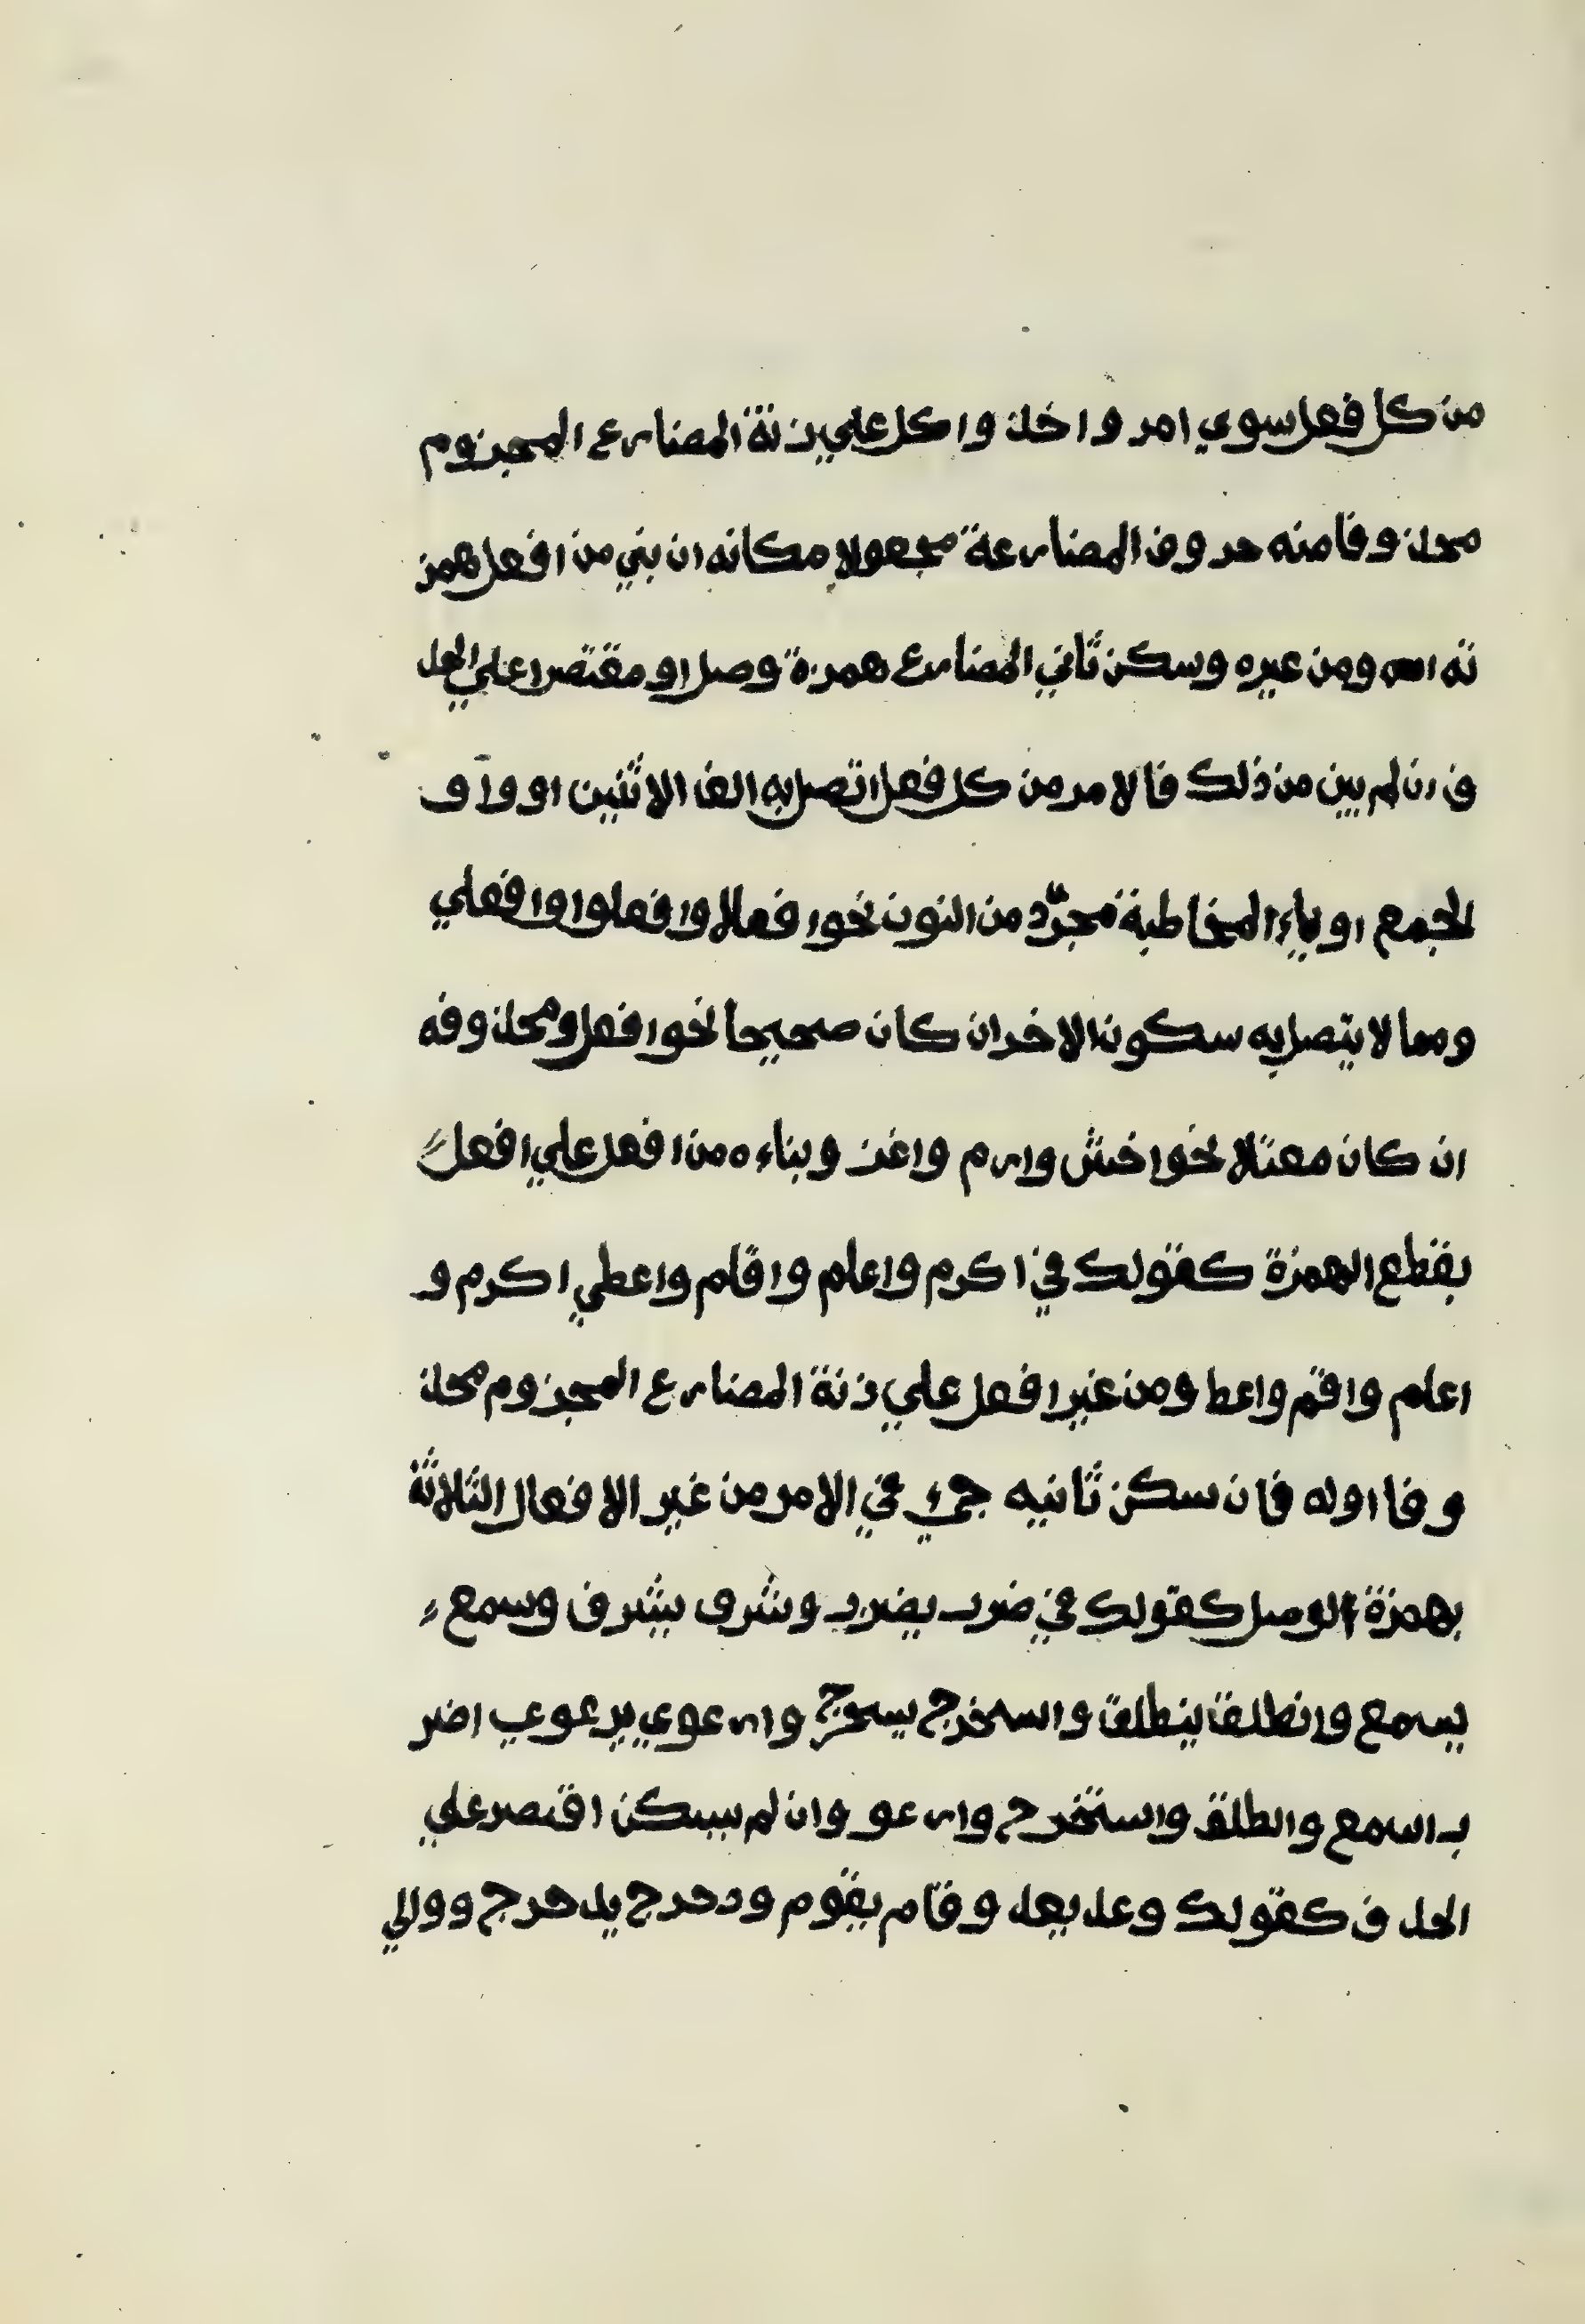 من كل فعل سوي امر و اخذ و اكل علي زنة المضارع المجزوم
محذوفا منه حروف المضارعة مجعولا مكانه ان بني من افعل همز
ته ومن غيره وسكن ثاني المضارع همزة وصل او مقتصرا علي الحذ
ف ان لم يبن من ذلك فالامر من كل فعل اتصل به الف الاثنين او واو
الجمع او ياء المخاطبة مجرّد من النون نحو افعلا وافعلوا وافعلي
ومما لا يتصل به سكون الاخر ان كان صحيحا نحو افعل ومحذوفه
ان كان معتلا نحو اخش وارم واغز وبناءه من افعل علي افعل
بقطع الهمزة كقولك في اكرم واعلم واقام واعطي اكرم و
اعلم واقم واعط ومن غير افعل علي زنة المضارع المجزوم محذ
وفا اوله فان سكن ثانيه جيء في الامر من غير الافعال الثلاثة
بهمزة الوصل كقولك في ضرب يضرب وشرف يشرف وسمع
يسمع وانطلق ينطلق واستخرج يستخرج وارعوي يرعوي اضر
ب اسمع وانطلق واستخرج وارعو وان لم يسكن اقتصر علي
الحذف كقولك وعد يعد وقام يقوم ودحرج يدحرج ووالي